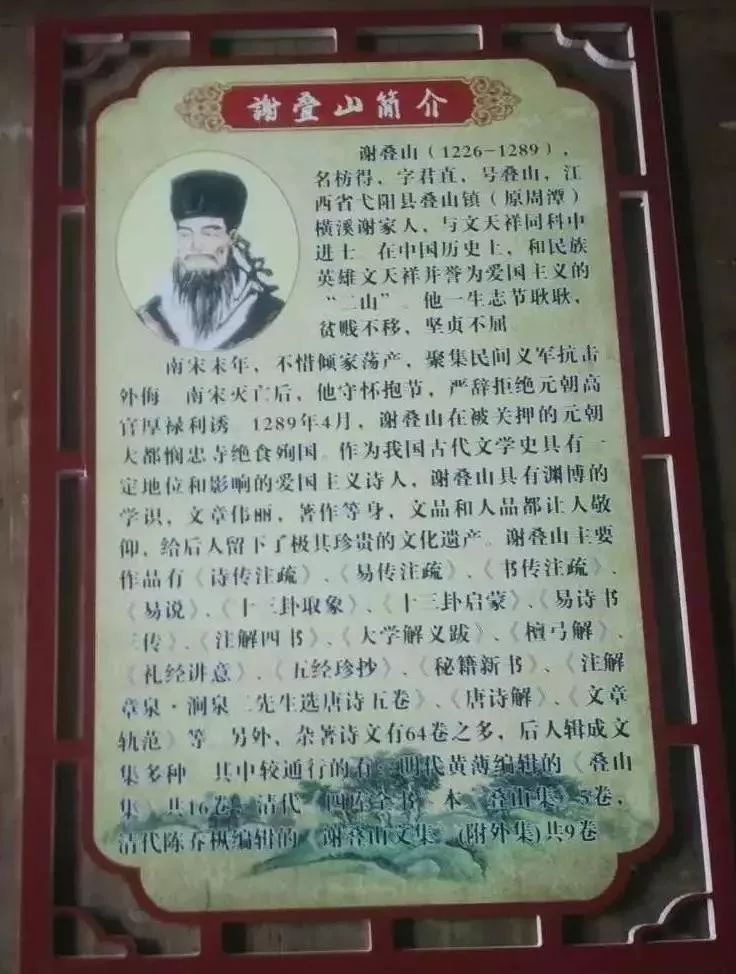 谢叠山简介
谢叠山（1226-1289），
名枋得，字君直，号叠山，江
西省弋阳县叠山镇（原周潭）
横溪谢家人，与文天祥同科中
进士 在中国历史上，和民族
英雄文天祥并誉为爱国主义的
“二山” 他一生志节耿耿，
贫贱不移，坚贞不屈
南宋末年，不惜倾家荡产，聚集民间义军抗击
外侮 南宋灭亡后，他守怀抱节，严辞拒绝元朝高
官厚禄利诱 1289年4月，谢叠山在被关押的元朝
大都悯忠寺绝食殉国。作为我国古代文学史具有一
定地位和影响的爱国主义诗人，谢叠山具有渊博的
学识，文章伟丽，著作等身，文品和人品都让人敬
仰，给后人留下了极其珍贵的文化遗产。谢叠山主要
作品有《诗传注疏》、《易传注疏》、《书传注疏》、
《易说》、《十三卦取象》、《十三卦启蒙》、《易诗书
三传》、《注解四书》、《大学解义跋》、《檀弓解》、
《礼经讲意》、《五经珍抄》、《秘籍新书》、《注解
章泉·涧泉二先生选唐诗五卷》、《唐诗解》、《文章
轨范》等 另外，杂著诗文有64卷之多，后人辑成文
集多种 其中较通行的有 明代黄薄编辑的《叠山
集》共16卷，清代《四库全书》本《叠山集》5卷，
清代陈乔枞编辑的《谢叠山文集》(附外集)共9卷